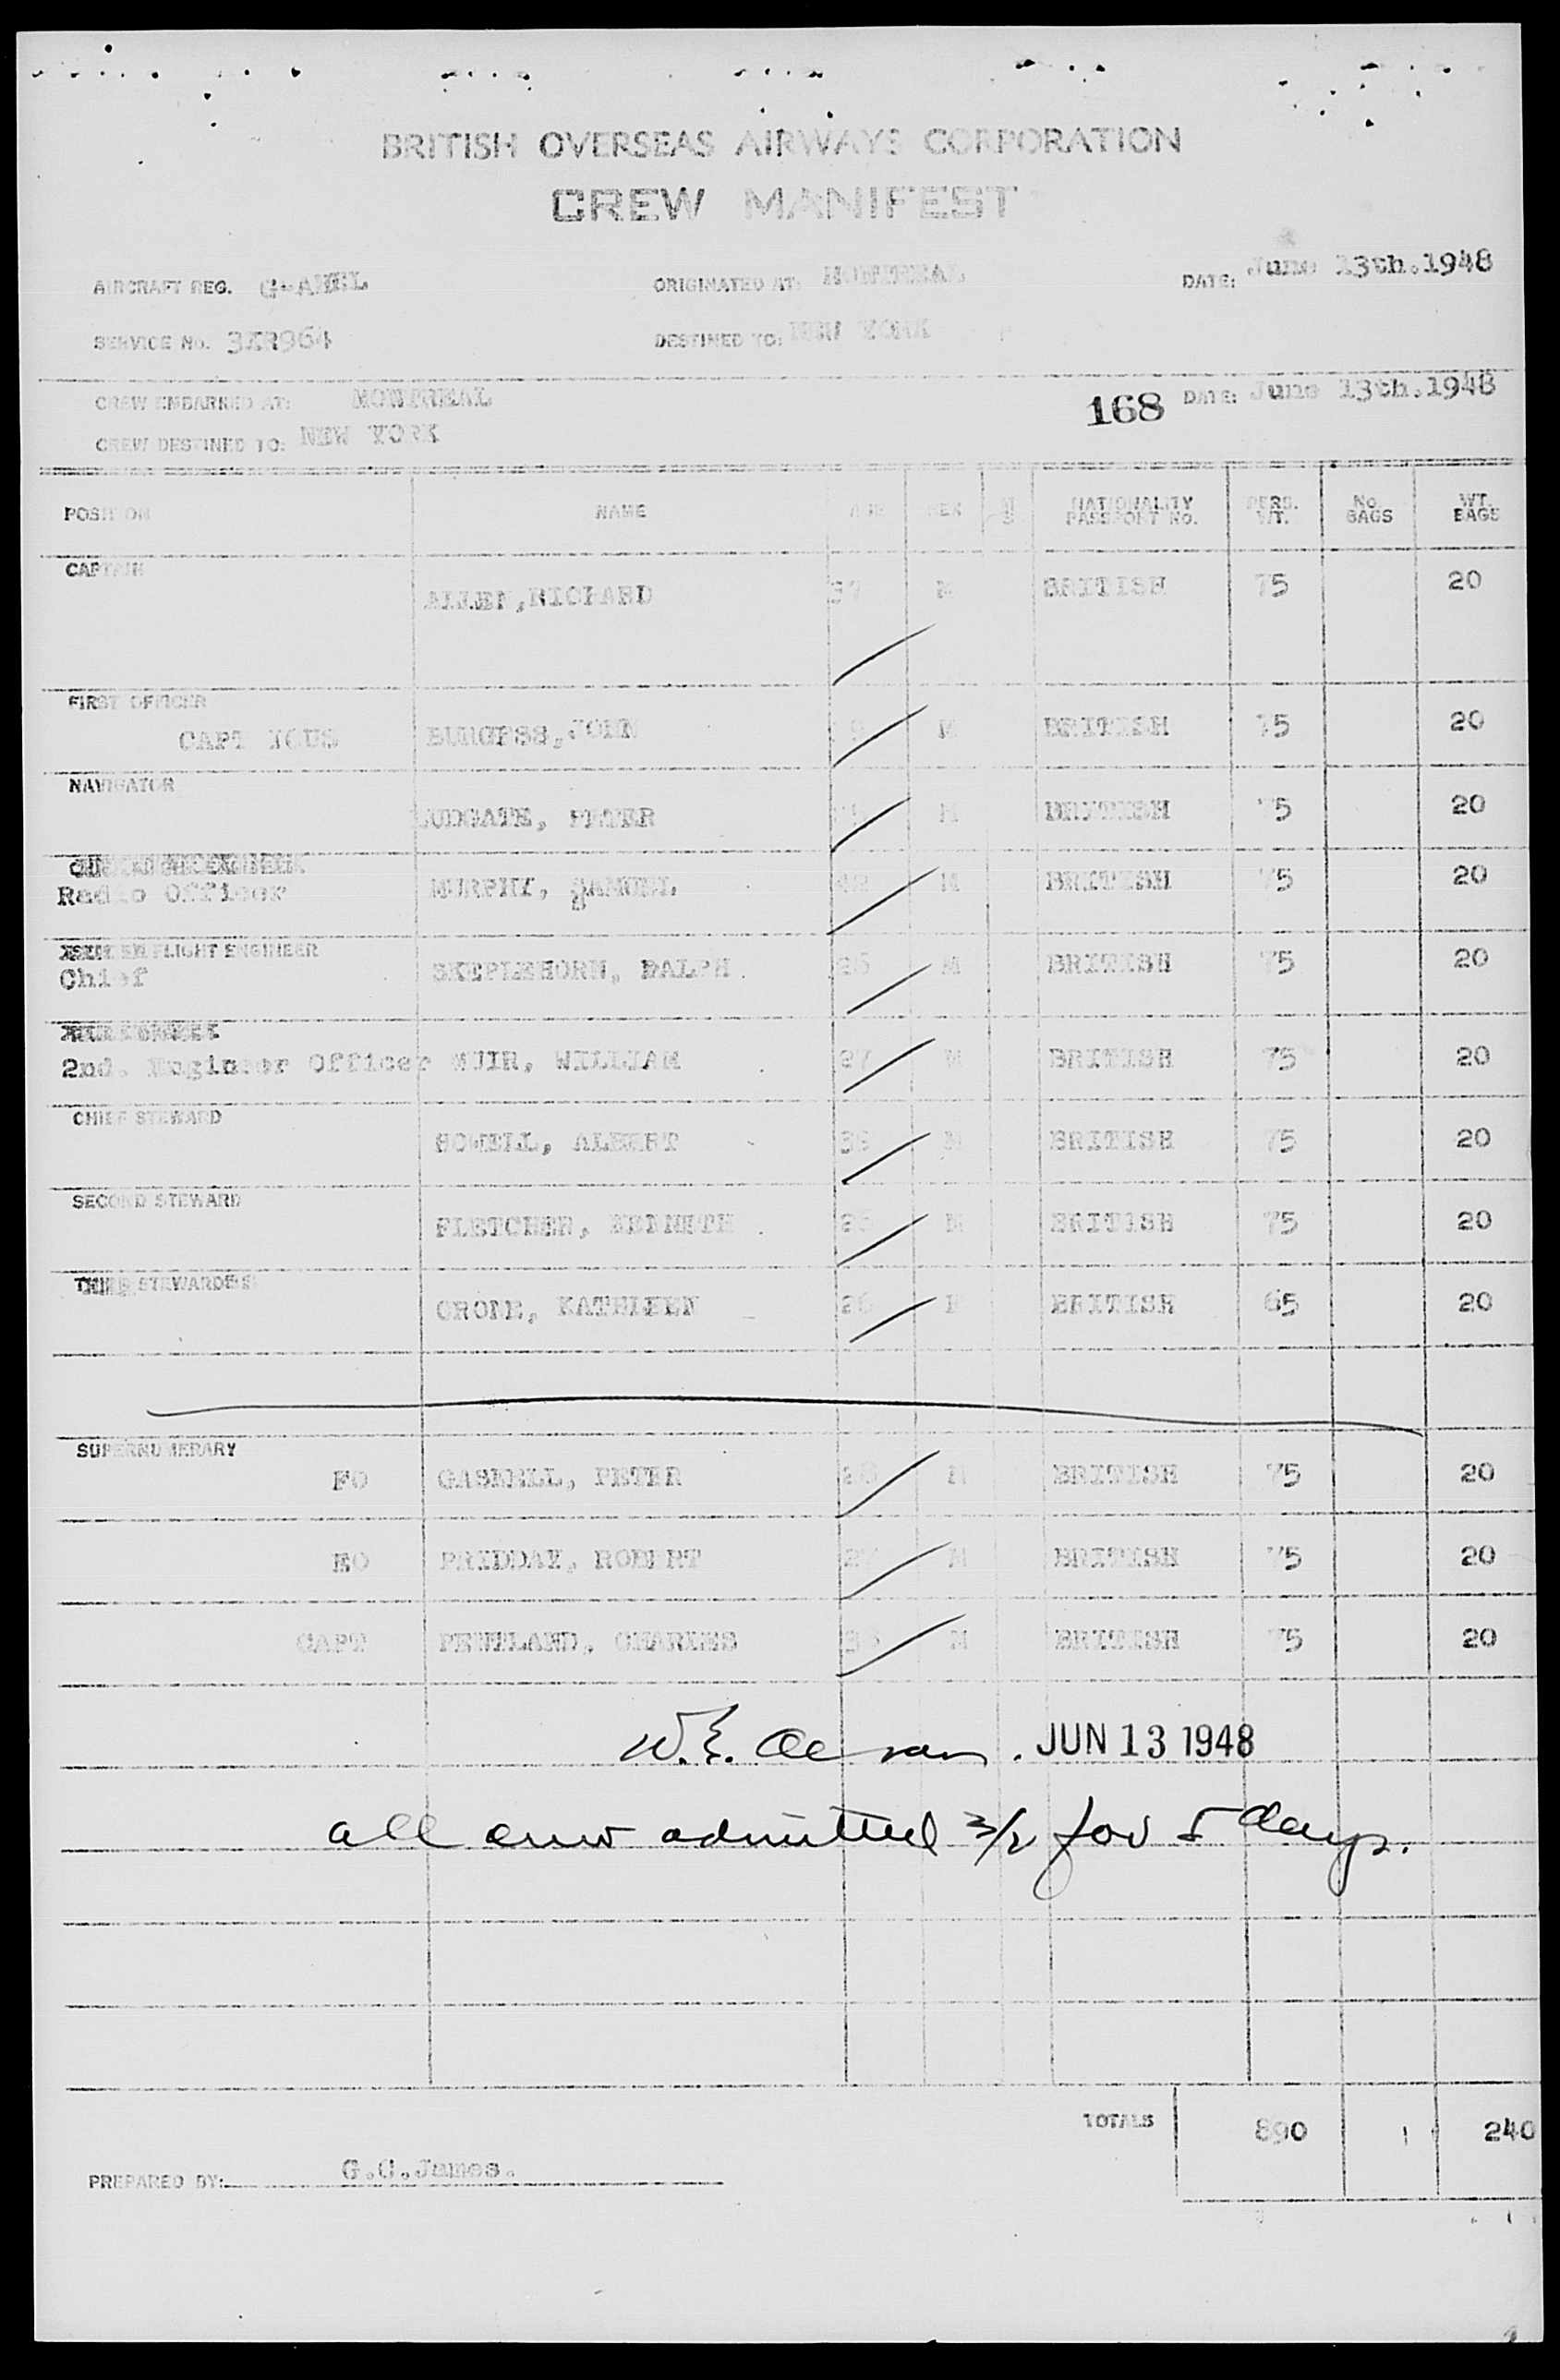 BRITISH OVERSEAS AIRWAYS CORPORATION
CREW MANIFEST
AIRCRAFT REG. ORIGINATED AT: MONTREAL DATE: June 13th.1948
SERVICE NO. DESTINED TO: NEW YORK
CREW EMBARKED AT: MONTREAL 168 DATE: June 13th.1948
CREW DESTINED TO: NEW YORK
POSITION NAME AGE SEX NATIONALITY PASSPORT NO. PERS. WT. No. BAGS WT. BAGS
CAPTAIN
ALLEN, RICHARD 37 M BRITISH 75 20
FIRST OFFICER
CAPT BURGESS, JOHN M BRITISH 75 20
NAVIGATOR
LUDGATE, PETER M BRITISH 75 20
Radio Officer MURPHY, SAMUEL M BRITISH 75 20
FLIGHT ENGINEER
Chief RALPH M BRITISH 75 20
2nd. Engineer Officer MUIR, WILLIAM 27 M BRITISH 75 20
CHIEF STEWARD
ALBERT M BRITISH 75 20
SECOND STEWARD
FLETCHER, KENNETH M BRITISH 75 20
STEWARDESS
KATHLEEN 26 BRITISH 65 20
SUPERNUMERARY
FO GASKELL, PETER 28 M BRITISH 75 20
EO PRIDDAY, ROBERT M BRITISH 75 20
CAPT PENTLAND, CHARLES M BRITISH 75 20
W.E. JUN 13 1948
all crew admitted 3/2 for 5 days.
TOTALS 890 240
PREPARED BY: G.C.James.